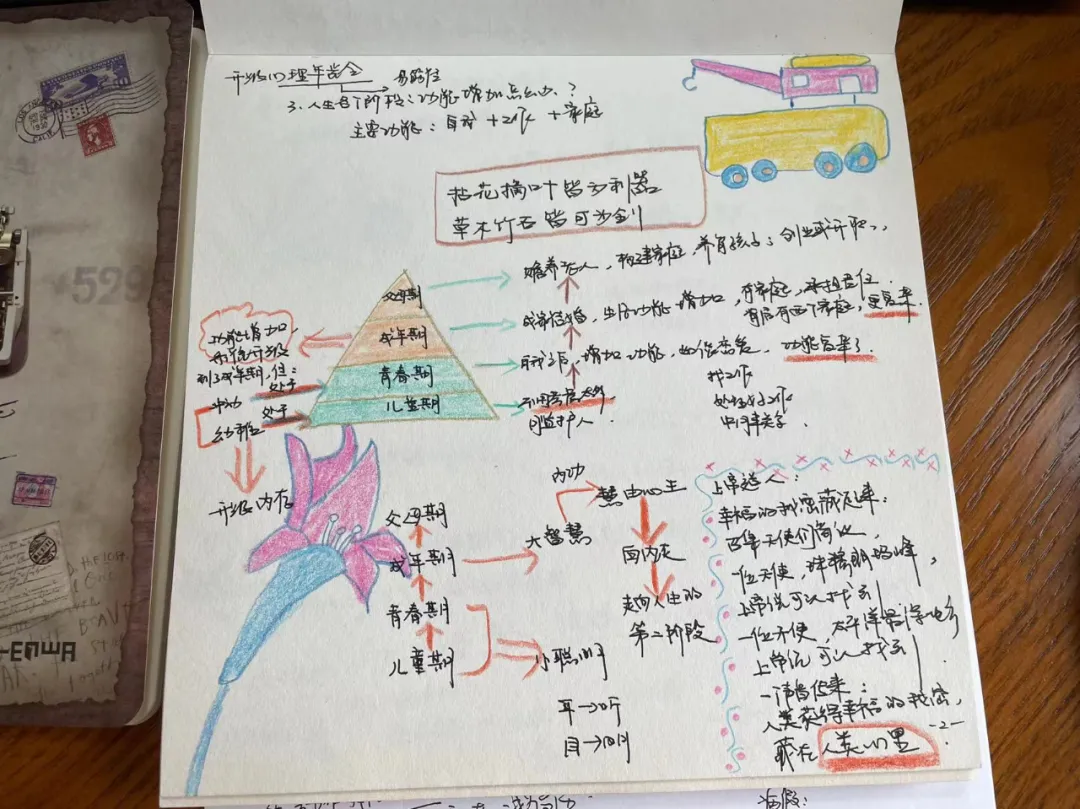 开放心理年龄全
易路径
3、人生各个阶段:功能增加怎么办?
主要功能:自我+工作+家庭
拈花摘叶皆为利器
草木竹石皆可为剑
父母期
成年期
青春期
儿童期
赡养老人,构建家庭,养育孩子;创业或开职
成家结婚,生活功能增加,有家庭,承担责任
背后有两个家庭,更复杂.
自我之后,增加功能,如谈恋爱.功能复杂了.
找工作
处理好工作
中同事关系.
可监护人.
功能增加,
到了成年期,但:
处于
处于
幼稚
升级内存
父母期
成年期
青春期
儿童期
大智慧
内功
慧由心生
向内走
走向人生的
第二阶段
小聪明
耳→听
目→明
上帝造人:
幸福的秘密藏起来:
召集天使们商议,
一位天使,珠穆朗玛峰,
上帝说可以找到
一位天使,太平洋最深的
上帝说可以找到
人类获得幸福的秘密,
藏在人类心里
529